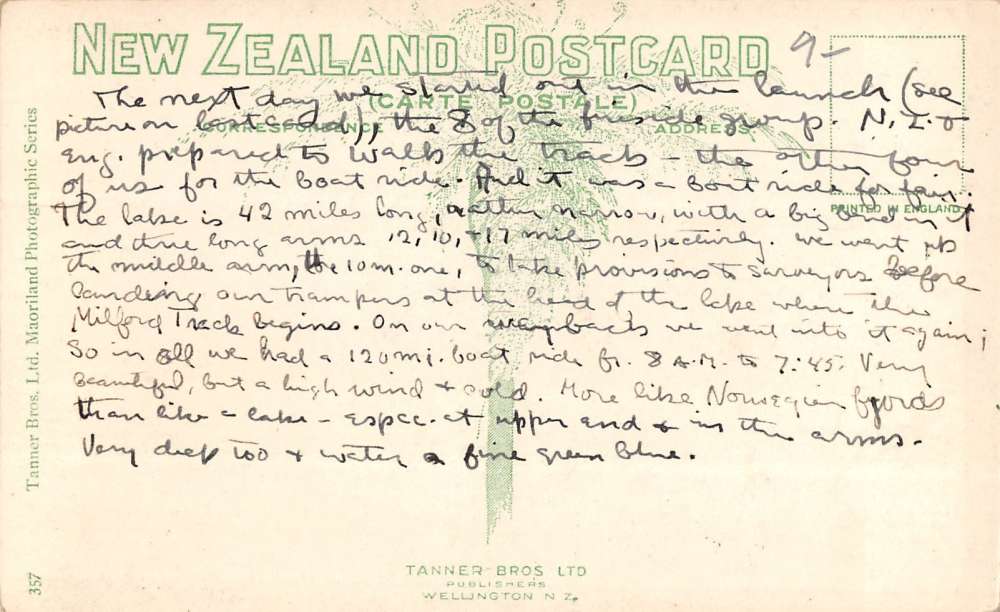 NEW ZEALAND POSTCARD
9-
(CARTE POSTALE)
CORRESPONDENCE
ADDRESS
PRINTED IN ENGLAND
The next day we started out in the launch (see
picture on last card), the 8 of the fireside group. N.Z. &
Eng. prepared to walk the track - the other four
of us for the boat ride. And it was a boat ride for fair.
The lake is 42 miles long, rather narrow, with a big bend in it
and three long arms 12, 10, + 17 miles respectively. We went up
the middle arm, the 10 m. one, to take provisions to surveyors before
landing our trampers at the head of the lake where the
Milford Track begins. On our way back we went into it again;
So in all we had a 120 mi. boat ride fr. 8 A.M. to 7:45. Very
beautiful, but a high wind + cold. More like Norwegian fjords
than like a lake - espec. at upper end & in the arms.
Very deep too + water a fine green blue.
Tanner Bros. Ltd. Maoriland Photographic Series
357
TANNER BROS LTD
PUBLISHERS
WELLINGTON N Z.